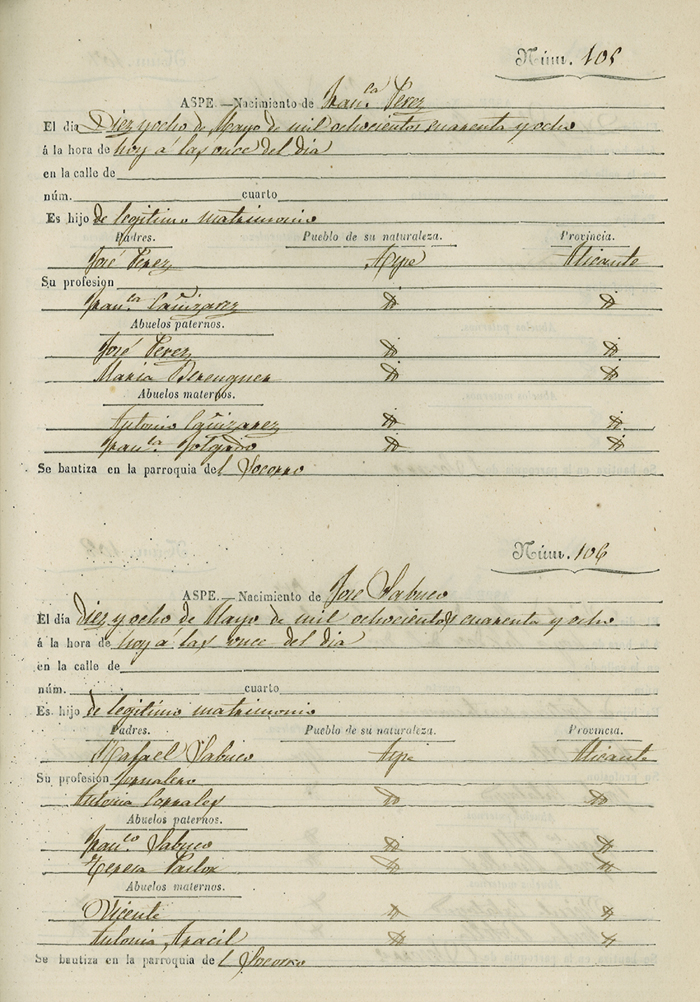 Núm. 105
ASPE.—Nacimiento de Fran.ca Perez
El dia Diez y ocho de Mayo de mil ochocientos cuarenta y ocho
á la hora de hoy á las once del dia
en la calle de
núm. cuarto
Es hijo de legitimo matrimonio
Padres. Pueblo de su naturaleza. Provincia.
José Perez Aspe Alicante
Su profesion
Fran.ca Cañizarez id id
Abuelos paternos.
José Perez id id
Maria Berenguer id id
Abuelos maternos.
Antonio Cañizarez id id
Fran.ca id id
Se bautiza en la parroquia del Socorro
Núm. 106
ASPE.—Nacimiento de José Sabuco
El dia diez y ocho de Mayo de mil ochocientos cuarenta y ocho
á la hora de hoy á las once del dia
en la calle de
núm. cuarto
Es hijo de legitimo matrimonio
Padres. Pueblo de su naturaleza. Provincia.
Rafael Sabuco Aspe Alicante
Su profesion Jornalero
Antonia Corrales id id
Abuelos paternos.
Fran.co Sabuco id id
Teresa Pastor id id
Abuelos maternos.
Vicente id id
Antonia Aracil id id
Se bautiza en la parroquia de l Socorro